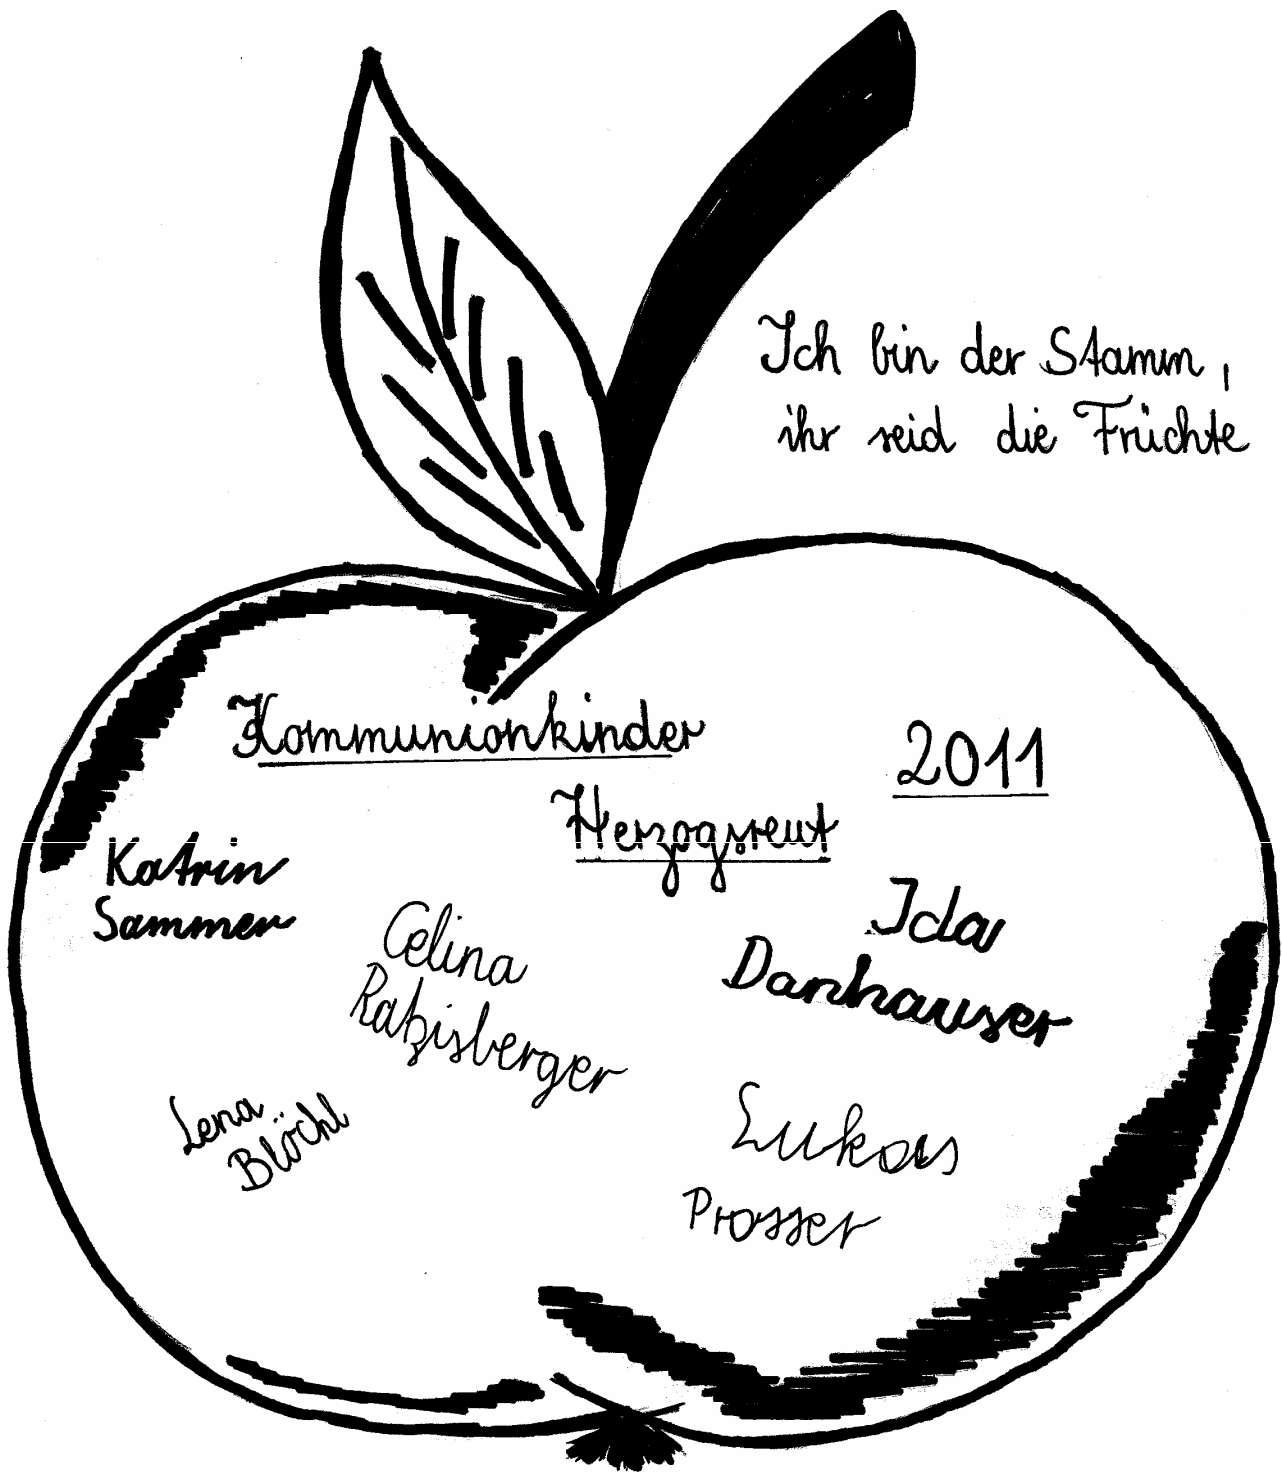 Ich bin der Stamm,
ihr seid die Früchte
Kommunionkinder
2011
Herzogsreut
Katrin
Sammer
Celina
Ratzisberger
Ida
Danhauser
Lena
Blöchl
Lukas
Prosser